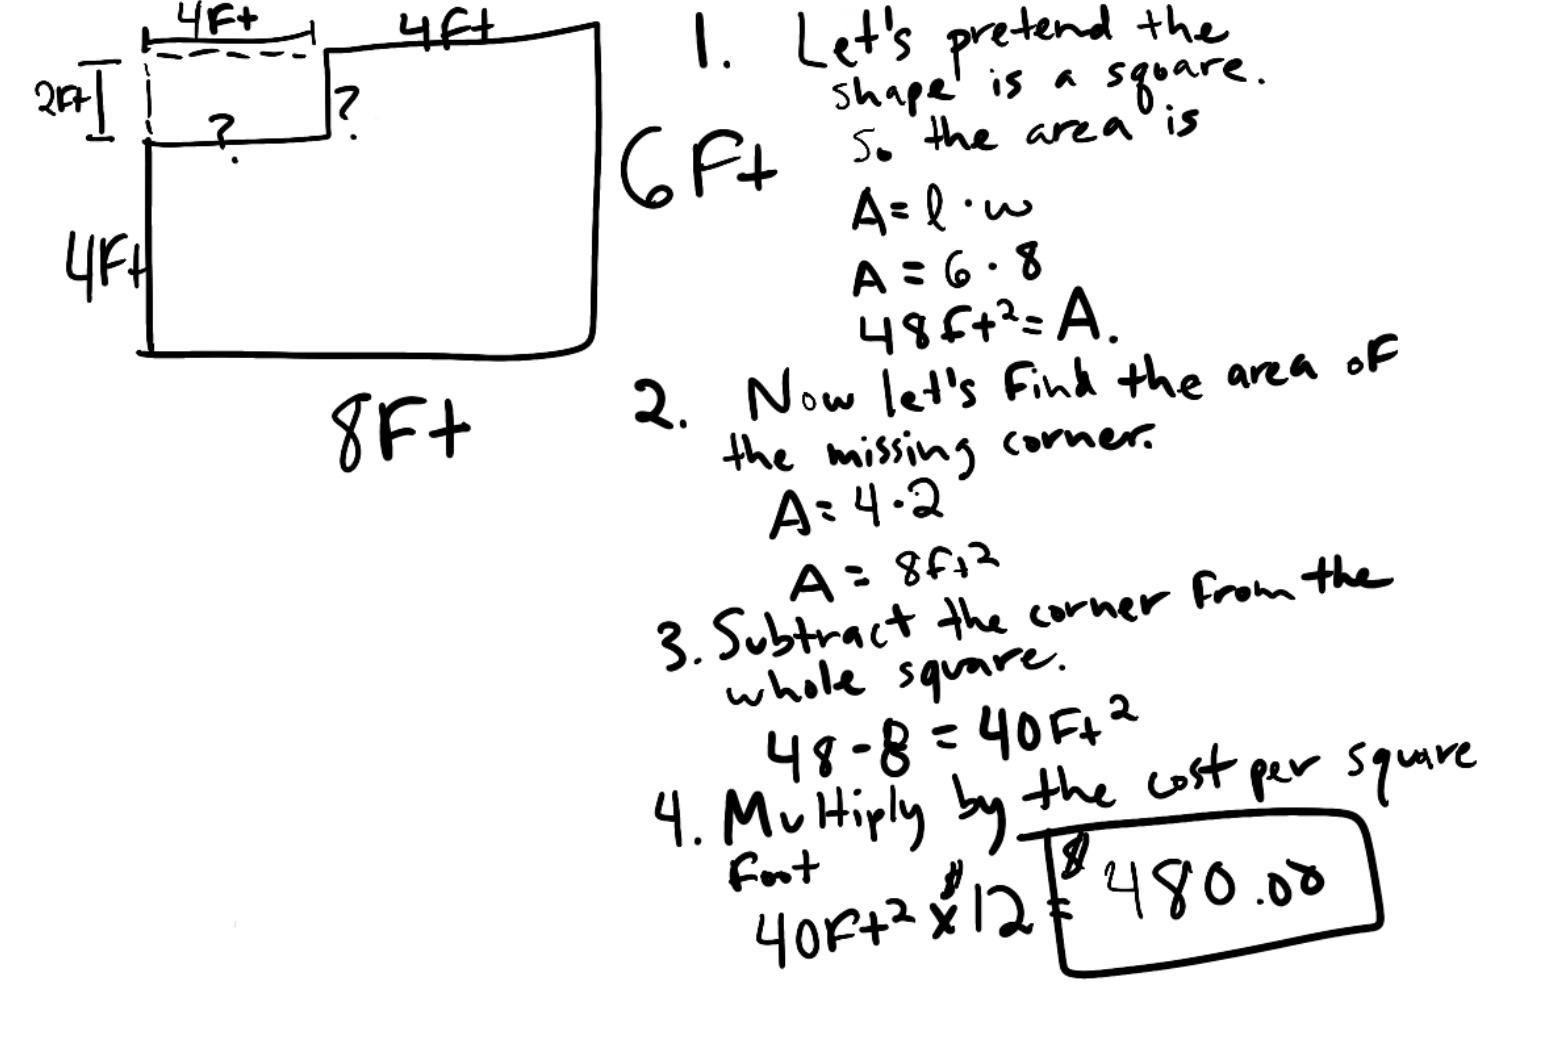 4Ft
4Ft
2Ft
?
?
6Ft
4Ft
8Ft
1. Let's pretend the
shape is a square.
So the area is
A = l · w
A = 6 · 8
48 ft² = A.
2. Now let's find the area of
the missing corner.
A = 4 · 2
A = 8ft²
3. Subtract the corner from the
whole square.
48 - 8 = 40Ft²
4. Multiply by the cost per square
foot
40Ft² x $12 = $480.00